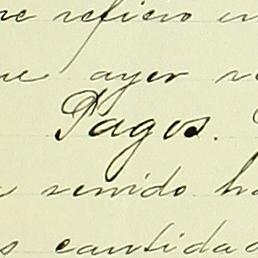 me refiero en
ue ayer
Pagos.
venido ha
s cantidad